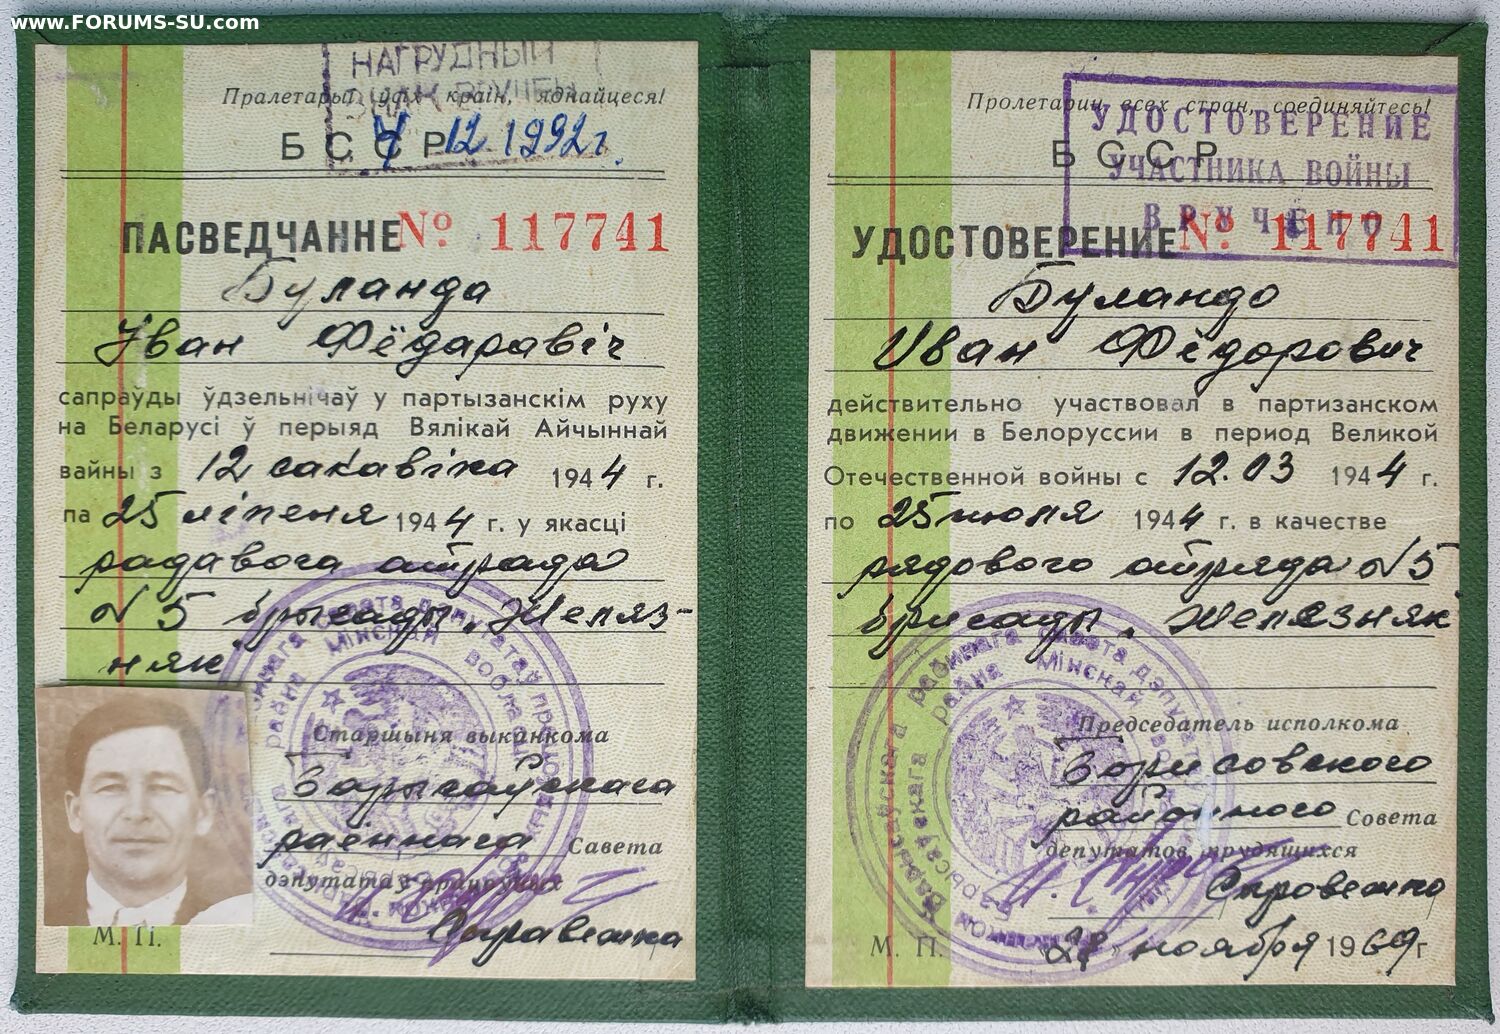 www.FORUMS-SU.com
НАГРУДНЫЙ
ЗНАК ВРУЧЕН
Пралетарыі ўсіх краін, яднайцеся!
БССР
4 12 1992г.
ПАСВЕДЧАННЕ № 117741
Буланда
Іван Фёдаравіч
сапраўды ўдзельнічаў у партызанскім руху
на Беларусі ў перыяд Вялікай Айчыннай
вайны з 12 сакавіка 1944 г.
па 25 ліпеня 1944 г. у якасці
радавога атрада
№5 брыгады „Жаляз-
няк"
Старшыня выканкома
Барысаўскага
раённага Савета
дэпутатаў працоўных
Справетка
М. П.
Пролетарии всех стран, соединяйтесь!
БССР
УДОСТОВЕРЕНИЕ
УЧАСТНИКА ВОЙНЫ
ВРУЧЕНО
УДОСТОВЕРЕНИЕ № 117741
Буландо
Иван Фёдорович
действительно участвовал в партизанском
движении в Белоруссии в период Великой
Отечественной войны с 12.03 1944 г.
по 25 июля 1944 г. в качестве
рядового отряда №5
бригады „Железняк"
Председатель исполкома
Борисовского
районного Совета
депутатов трудящихся
М. П.
„28" ноября 1969 г